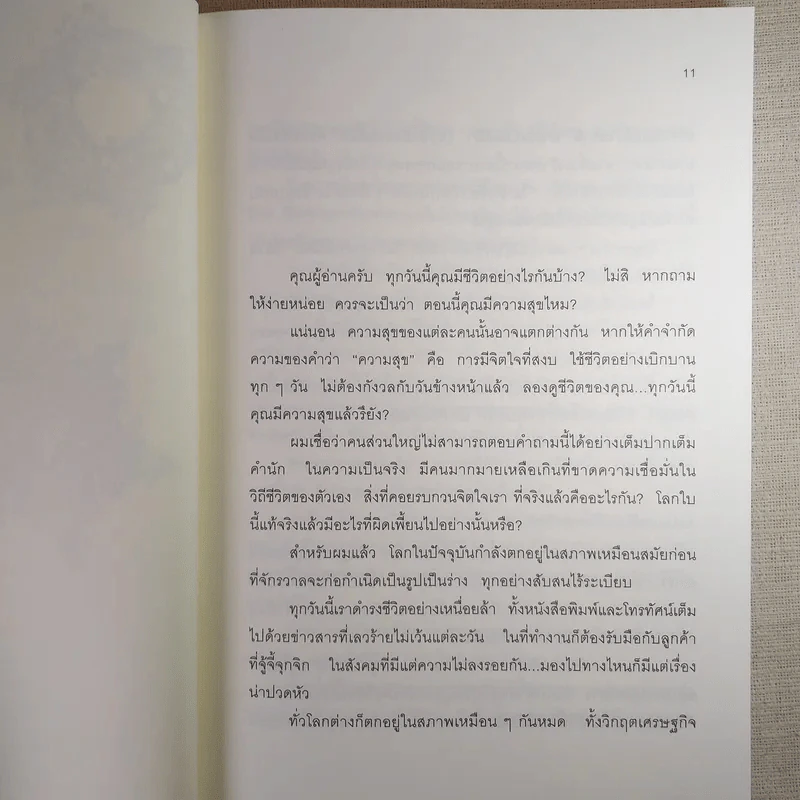 11
คุณผู้อ่านครับ ทุกวันนี้คุณมีชีวิตอย่างไรกันบ้าง? ไม่สิ หากถาม
ให้ง่ายหน่อย ควรจะเป็นว่า ตอนนี้คุณมีความสุขไหม?
แน่นอน ความสุขของแต่ละคนนั้นอาจแตกต่างกัน หากให้คำจำกัด
ความของคำว่า "ความสุข" คือ การมีจิตใจที่สงบ ใช้ชีวิตอย่างเบิกบาน
ทุก ๆ วัน ไม่ต้องกังวลกับวันข้างหน้าแล้ว ลองดูชีวิตของคุณ...ทุกวันนี้
คุณมีความสุขแล้วรึยัง?
ผมเชื่อว่าคนส่วนใหญ่ไม่สามารถตอบคำถามนี้ได้อย่างเต็มปากเต็ม
คำนัก ในความเป็นจริง มีคนมากมายเหลือเกินที่ขาดความเชื่อมั่นใน
วิถีชีวิตของตัวเอง สิ่งที่คอยรบกวนจิตใจเรา ที่จริงแล้วคืออะไรกัน? โลกใบ
นี้แท้จริงแล้วมีอะไรที่ผิดเพี้ยนไปอย่างนั้นหรือ?
สำหรับผมแล้ว โลกในปัจจุบันกำลังตกอยู่ในสภาพเหมือนสมัยก่อน
ที่จักรวาลจะก่อกำเนิดเป็นรูปเป็นร่าง ทุกอย่างสับสนไร้ระเบียบ
ทุกวันนี้เราดำรงชีวิตอย่างเหนื่อยล้า ทั้งหนังสือพิมพ์และโทรทัศน์เต็ม
ไปด้วยข่าวสารที่เลวร้ายไม่เว้นแต่ละวัน ในที่ทำงานก็ต้องรับมือกับลูกค้า
ที่จู้จี้จุกจิก ในสังคมที่มีแต่ความไม่ลงรอยกัน...มองไปทางไหนก็มีแต่เรื่อง
น่าปวดหัว
ทั่วโลกต่างก็ตกอยู่ในสภาพเหมือน ๆ กันหมด ทั้งวิกฤตเศรษฐกิจ